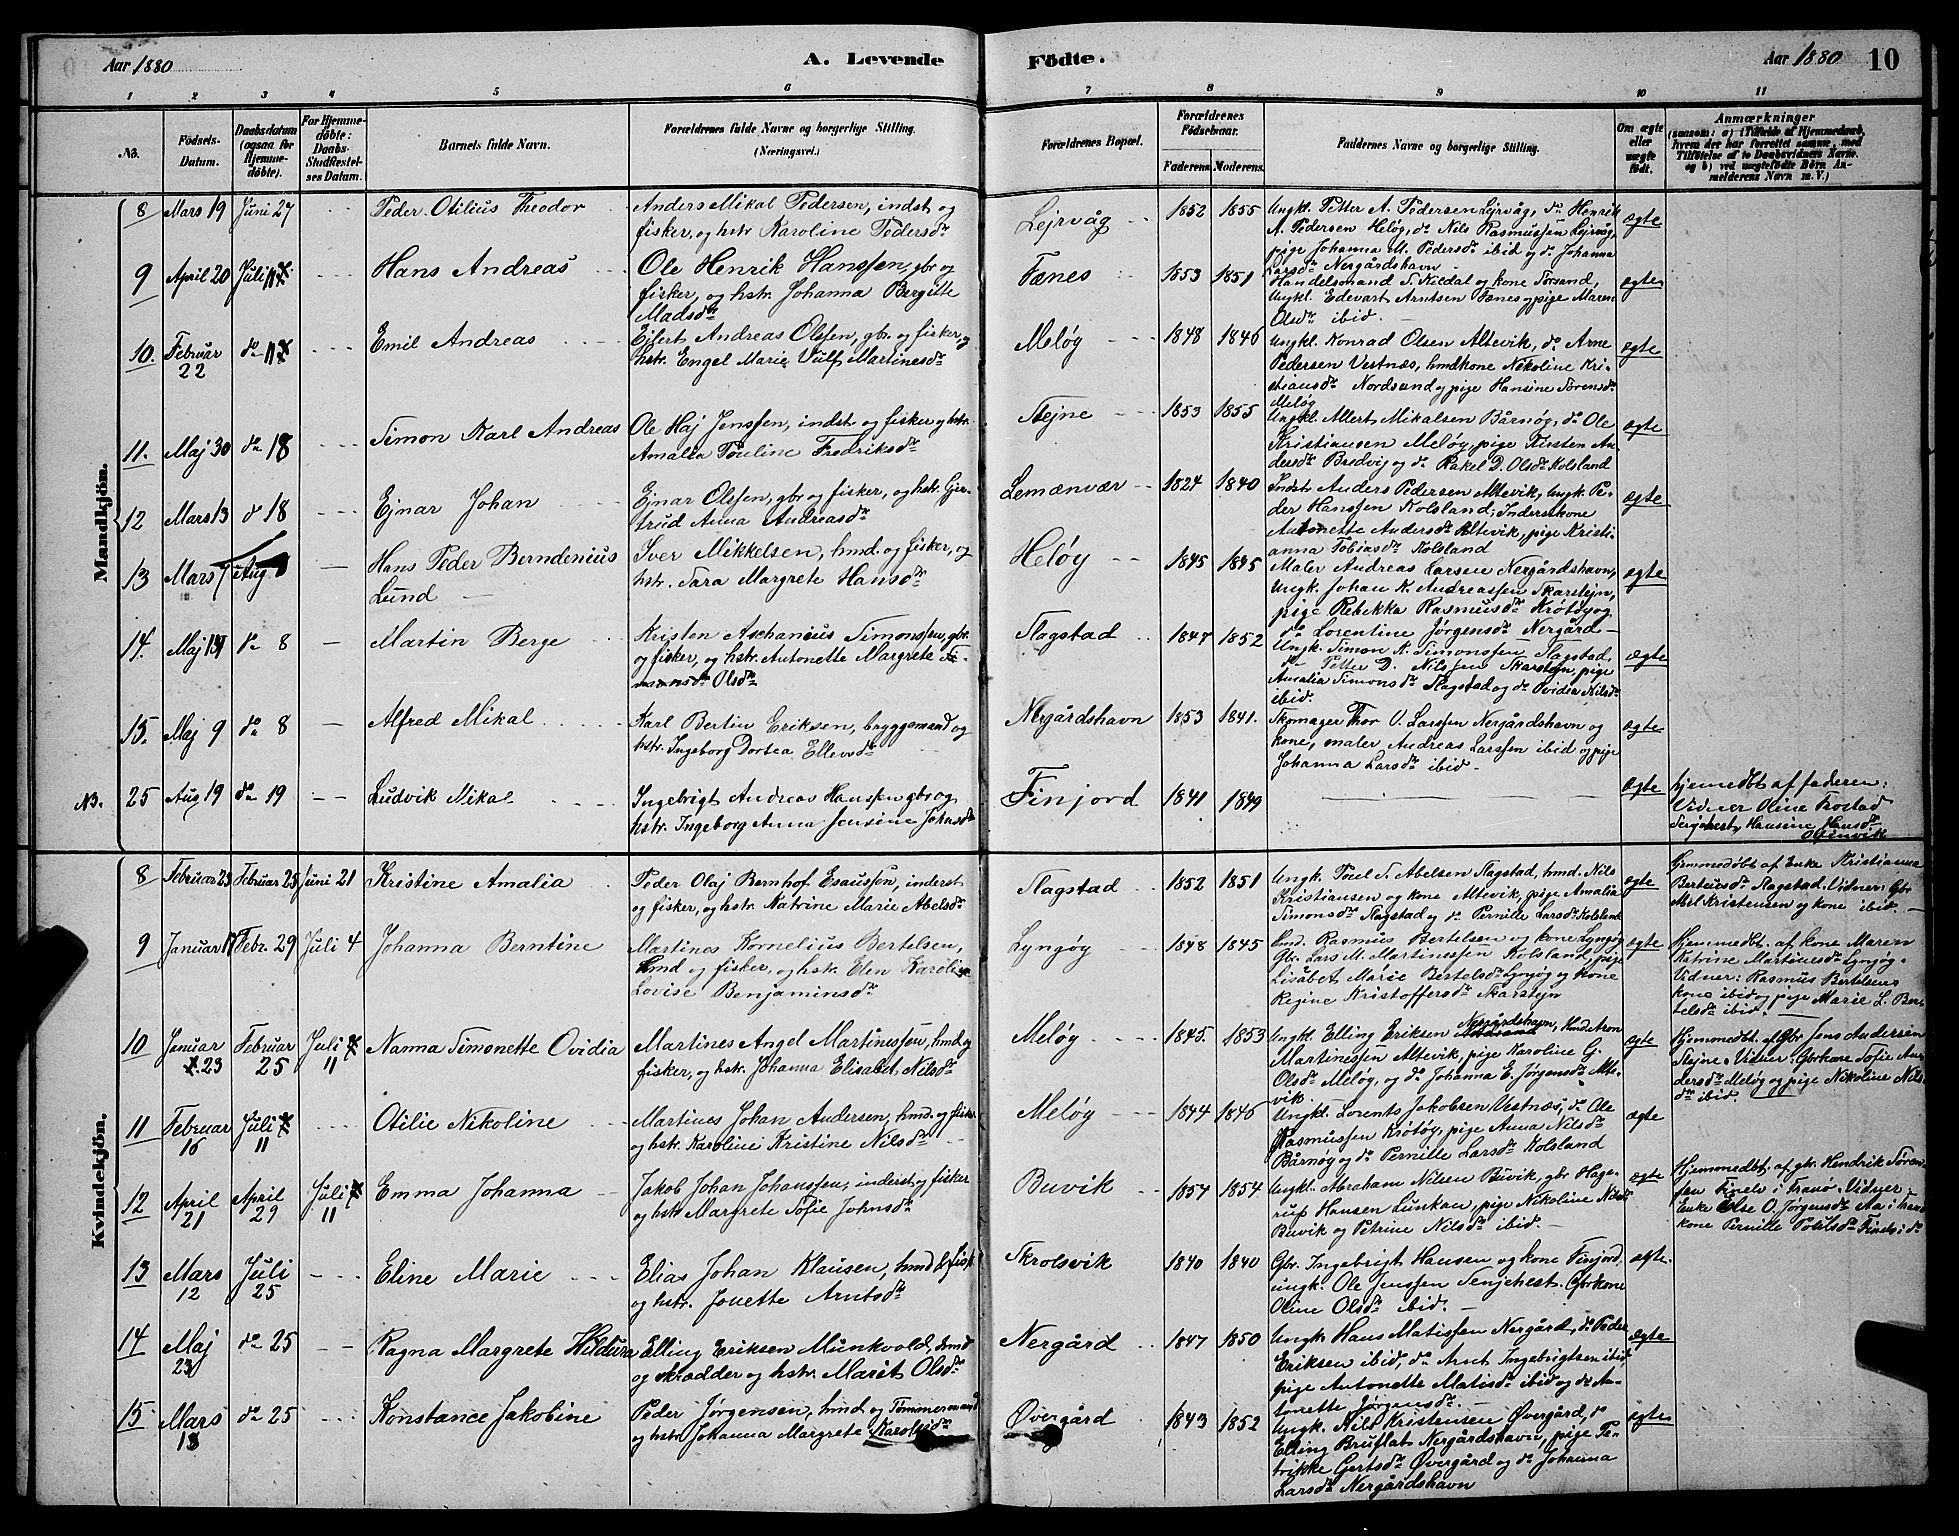 Aar 1880
A. Levende
Födte.
Aar 1880
10
1 2 3 4 5 6 7 8 9 10 11
No.
Födsels-
Datum.
Daabsdatum
(ogsaa for
Hjemme-
döbte).
For Hjemme-
döbte:
Daabs-
Stadfæstel-
ses Datum.
Barnets fulde Navn.
Forældrenes fulde Navne og borgerlige Stilling.
(Næringsvei.)
Forældrenes Bopæl.
Forældrenes
Födselsaar.
Faderens Moderens.
Faddernes Navne og borgerlige Stilling.
Om ægte
eller
uægte
födt.
Anmærkninger
(saasom: a) i Tilfælde af Hjemmedaab,
hvem der har forrettet samme, med
Tilföielse af to Daabsvidners Navne.
og b) ved uægtefödte Börn An-
melderens Navn m. V.)
Mandkjön.
8 Mars 19 Juni 27 Peder Otilius Theodor
Anders Mikal Pedersen, indst og
fisker, og hstr. Karoline Pedersdr
Lejrvåg 1852 1855
Ungk. Petter A. Pedersen Lejrvåg, do Henrik
A. Pedersen Heløg, do Nils Rasmussen Lejrvåg,
pige Johanna M. Pedersdr ibid og do Johanna
Larsdr Nergårdshavn
ægte
9 April 20 Juli 11 Hans Andreas
Ole Henrik Hanssen, gbr og
fisker, og hstr. Johanna Bergitte
Madsdr
Fænes 1853 1851
Handelsmand S. Kildal og kone Forsand,
Ungk. Edevart Arntsen Fænes og pige Maren
Olsdr ibid.
ægte
10. Februar
22
do 11 Emil Andreas
Ejlert Andreas Olssen, gbr. og fisker, og
hstr. Engel Marie Vulf Martinesdr
Meløy 1848 1846
Ungk. Konrad Olsen Altevik, do Arne
Pedersen Vestnæs, hmdkone Nikoline Kri-
stiansdr Nordsand og pige Hansine Sørensdr
Meløy
ægte
11. Maj 30 do 18 Simon Karl Andreas
Ole Haj Jenssen, indst og fisker og hstr.
Amalia Pouline Fredriksdr
Stejne 1853 1855
Ungkl. Albert Mikalsen Bårnøg, do Ole
Kristiansen Meløy, pige Kirsten An-
dersdr Bredvig og do Rakel D. Olsdr Kolsland
ægte
12 Mars 13 do 18 Ejnar Johan
Ejnar Olssen, gbr og fisker, og hstr. Gjer-
trud Anna Andreasdr
Lemænvær 1824 1840
Indst Anders Pedersen Altevik, ungk. Pe-
der Hanssen Kolsland, Inderstkone
Antonette Andersdr Altevik, pige Kristi-
anna Tobiasdr Kolsland
ægte
13 Mars 7 Aug 8 Hans Peder Berndenius
Lund
Iver Mikkelsen, hmd. og fisker, og
hstr. Sara Margrete Hansdr
Heløy 1845 1845
Maler Andreas Larsen Nergårdshavn,
Ungk. Johan K. Andreassen Skarstejn,
pige Rebekka Rasmusdr Krøtøy og
do Lorentine Jørgensdr Nergård
ægte
14. Maj 19 do 8 Martin Berge
Kristen Aschanius Simonssen, gbr.
og fisker, og hstr. Antonette Margrete
Olsdr
Slagstad 1847 1852
Ungk. Simon K. Simonssen Slagstad,
do Petter D. Nilssen Skarstejn, pige
Amalia Simonsdr Slagstad og do Ovidia Nilsdr
ibid.
ægte
15. Maj 9 do 8 Alfred Mikal
Karl Bertin Eriksen, bryggemand og
hstr. Ingeborg Dortea Ellevsdr
Nergårdshavn 1853 1841.
Skomager Thor U. Larssen Nergårdshavn og
kone, maler Andreas Larssen ibid og pige
Johanna Larsdr ibid
ægte
NB. 25 Aug 19 do 19 Ludvik Mikal
Ingebrigt Andreas Hanssen gbr og
hstr. Ingeborg Anna Jensine Johnsdr
Finjord 1841 1849
ægte
hjemmedbt af faderen.
Vidner Oline Trostad
Senjehest, Hansine Hansdr
Kvindekjön.
8 Februar 23 Februar 25 Juni 21 Kristine Amalia
Peder Olaj Bernhof Esaussen, inderst
og fisker, og hstr. Katrine Marie Abelsdr
Slagstad 1852 1851
Ungk. Poiel S. Abelsen Slagstad, hmd. Nils
Kristiansen og kone Altevik, pige Amalia
Simonsdr Slagstad og do Pernille Larsdr Kolsland
ægte
Hjemmedøbt af Enke Kristianna
Berteusdr Slagstad. Vidner: Gbr
Abel Kristensen og kone ibid.
9 Januar 17 Febr. 29 Juli 4 Johanna Berntine
Martines Kornelius Bertelsen,
hmd og fisker, og hstr. Elen Karoline
Lovise Benjaminsdr
Lyngøy 1848 1845
Hmd. Rasmus Bertelsen og kone Lyngøy
Gbr. Lars M. Martinessen Kolsland, pige
Lisabet Marie Bertelsdr Lyngøy og kone
Regine Kristoffersdr Skarstejn
ægte
Hjemmedbt. af kone Maren
Katrine Martinesdr Lyngøy.
Vidner: Rasmus Bertelsens
kone ibid og pige Marie L. Ber-
telsdr ibid.
10 Januar
23
Februar
25
Juli
11
Nanna Simonette Ovidia
Martines Angel Martinessen, hmd og
fisker, og hstr. Johanna Elisabet Nilsdr
Meløy 1845. 1853
Ungk. Elling Eriksen Nergårdshavn, hmd Aron
Martinessen Altevik, pige Karoline G.
Olsdr Meløg, og do Johanna E. Jørgensdr Alte-
vik.
ægte
Hjemmedbt. af Gbr Jens Andersen
Stejne. Vidner: Gbrkone Sofie An-
dersdr Meløg og pige Nikoline Nils-
dr ibid.
11 Februar
16
Juli
11
Otilie Nikoline
Martines Johan Andersen, hmd. og fisk.
og hstr. Karoline Kristine Nilsdr
Meløy 1844 1846
Ungkl. Lorents Jakobsen Vestnæs, do Ole
Rasmussen Krøtøy, pige Anna Nilsdr
Bårnøg og do Pernille Larsdr Kolsland
ægte
12 April
21
April
29
Juli
11
Emma Johanna
Jakob Johan Johanssen, inderst og fisker
og hstr Margrete Sofie Johnsdr
Buvik 1854 1854
Ungkl. Abraham Nilsen Buvik, gbr Hage-
rup Hansen Lunkan, pige Nikoline Nilsdr
Buvik og Petrine Nilsdr ibid.
ægte
Hjemmedbt. af gbr. Hendrik Søren-
sen Finels i Tranø. Vidner:
Enke Else O. Jørgensdr Aa i Tranø
kone Pernille Poulsdr Finels i do
13 Mars
12
Juli
25
Eline Marie
Elias Johan Klausen, hmd og fisk
og hstr. Jonette Arntsdr
Skrolsvik 1840 1840
Gbr. Ingebrigt Hansen og kone Finjord,
ungk. Ole Jenssen Senjehest. Gbrkone
Oline Olsdr ibid.
ægte.
14 Maj
23
do 25 Ragna Margrete Hildura
Elling Eriksen Munkvold, hmd
og skrædder og hstr. Marit Olsdr
Nergård 1847 1850
Ungk. Hans Matissen Nergård, do Peder
Eriksen ibid, do Arnt Ingebrigtsen ibid,
pige Antonette Matisdr ibid og do An-
tonette Jørgensdr.
ægte
15 Mars
13
do 25 Konstance Jakobine
Peder Jørgensen, hmd og Tømmermand
og hstr. Johanna Margrete Karolusdr
Øvergård 1843 1852
Ungk. Nils Kristensen Øvergård, do
Elling Bruflat Nergårdshavn, pige Pe-
trikke Gertsdr Øvergård og do Johanna
Larsdr Nergårdshavn
ægte